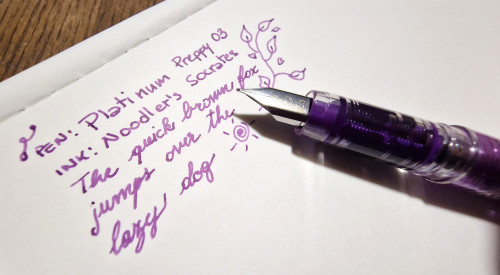 PEN: Platinum Preppy 03
INK: Noodler's Socrates
The quick brown fox
jumps over the
lazy dog